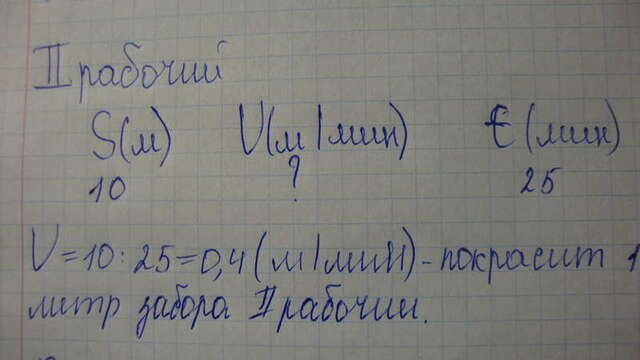 II рабочий
S(м) V(м/мин) t(мин)
10 ? 25
V=10:25=0,4(м/мин)-покрасит 1
митр забора II рабочий.